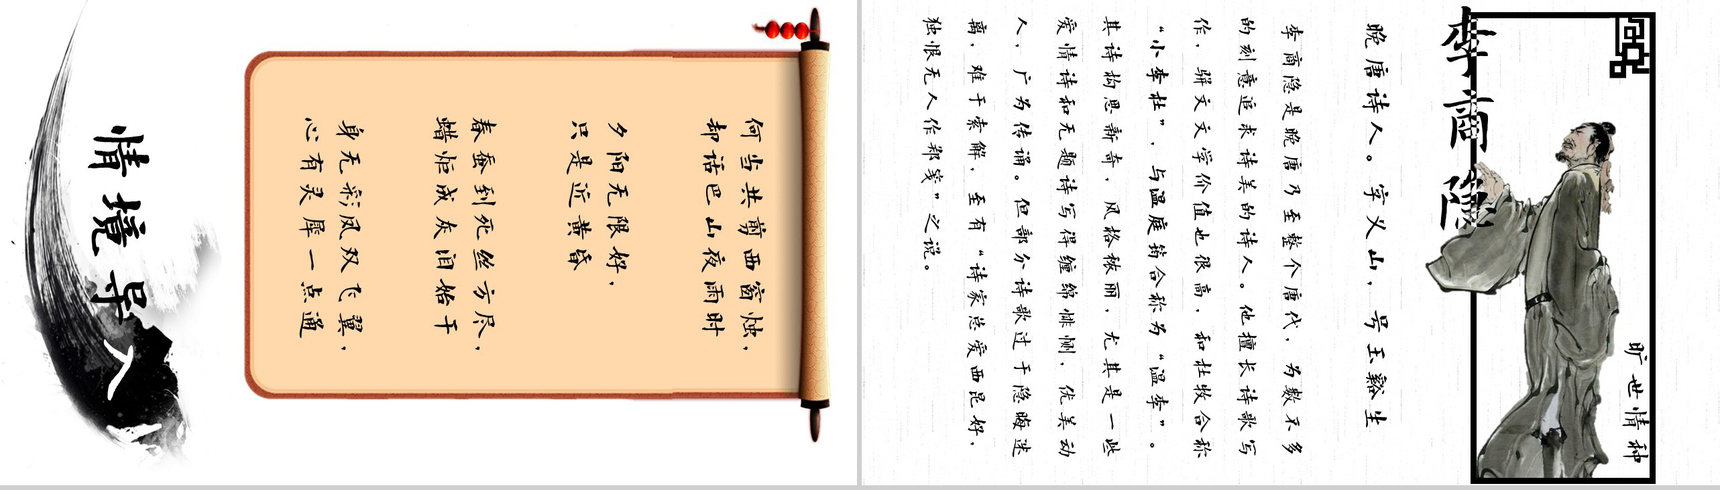 情境导入
何当共剪西窗烛，
却话巴山夜雨时
夕阳无限好，
只是近黄昏
春蚕到死丝方尽，
蜡炬成灰泪始干
身无彩凤双飞翼，
心有灵犀一点通
李商隐
旷世情种
晚唐诗人。字义山，号玉谿生
李商隐是晚唐乃至整个唐代，为数不多
的刻意追求诗美的诗人。他擅长诗歌写
作，骈文文学价值也很高，和杜牧合称
“小李杜”，与温庭筠合称为“温李”。
其诗构思新奇，风格秾丽，尤其是一些
爱情诗和无题诗写得缠绵悱恻，优美动
人，广为传诵。但部分诗歌过于隐晦迷
离，难于索解，至有“诗家总爱西昆好，
独恨无人作郑笺”之说。